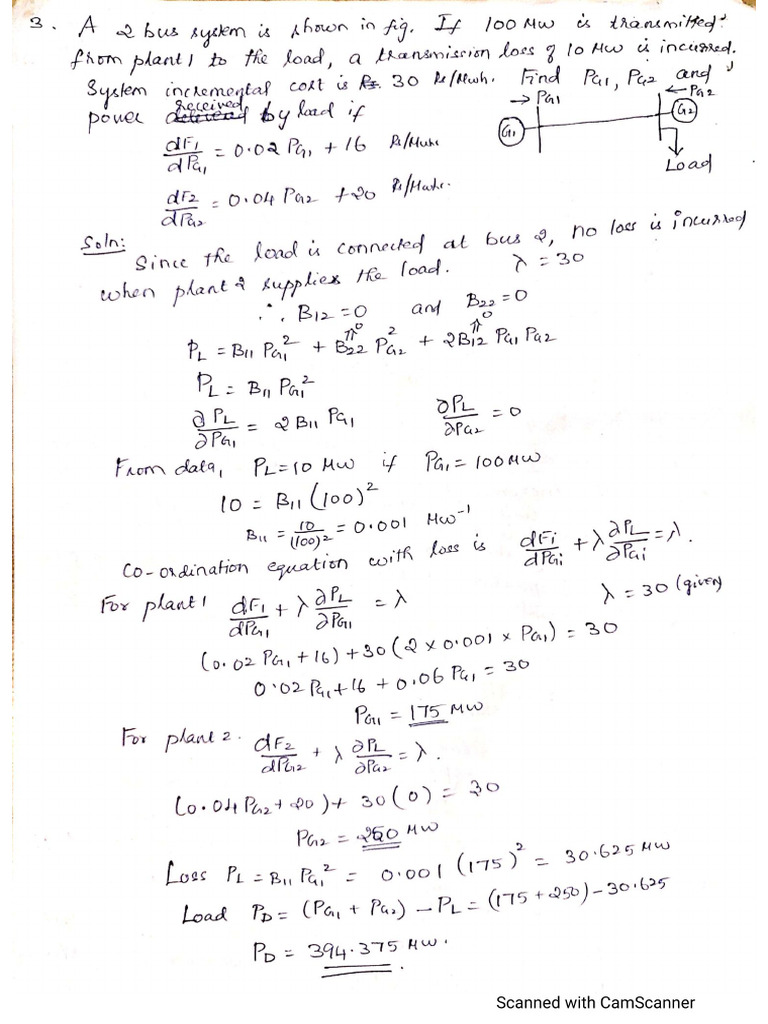 3. A 2 bus system is shown in fig. If 100 MW is transmitted
from plant 1 to the load, a transmission loss of 10 MW is incurred.
System incremental cost is Rs. 30 Rs/Mwh. Find PG1, PG2 and
power received by load if
→ PG1
← PG2
G1
G2
Load
dF1/dPG1 = 0.02 PG1 + 16 Rs/Mwhr
dF2/dPG2 = 0.04 PG2 + 20 Rs/Mwhr.
Soln:
Since the load is connected at bus 2, no loss is incurred
when plant 2 supplies the load. λ = 30
∴ B12 = 0 and B22 = 0
PL = B11 PG1² + B22 PG2² + 2B12 PG1 PG2
0
0
PL = B11 PG1²
∂PL/∂PG1 = 2 B11 PG1 ∂PL/∂PG2 = 0
From data, PL = 10 MW if PG1 = 100 MW
10 = B11 (100)²
B11 = 10/(100)² = 0.001 MW⁻¹
Co-ordination equation with loss is dFi/dPGi + λ ∂PL/∂PGi = λ.
For plant 1 dF1/dPG1 + λ ∂PL/∂PG1 = λ λ = 30 (given)
(0.02 PG1 + 16) + 30 (2 × 0.001 × PG1) = 30
0.02 PG1 + 16 + 0.06 PG1 = 30
PG1 = 175 MW
For plant 2. dF2/dPG2 + λ ∂PL/∂PG2 = λ.
(0.04 PG2 + 20) + 30 (0) = 30
PG2 = 250 MW
Loss PL = B11 PG1² = 0.001 (175)² = 30.625 MW
Load PD = (PG1 + PG2) - PL = (175 + 250) - 30.625
PD = 394.375 MW.
Scanned with CamScanner